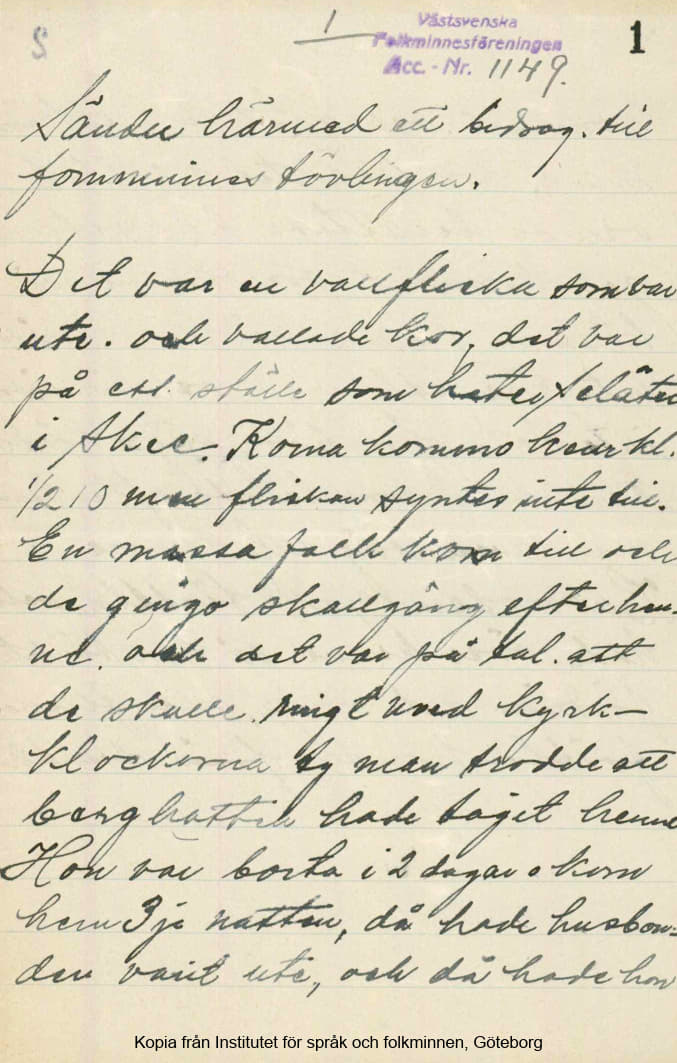 S
1
Västsvenska
Folkminnesföreningen
Acc. - Nr. 1149.
1
Sänder härmed ett bidrag. till
fornminnes tävlingen.
Det var en vallflicka som var
ute. och vallade kor, det var
på ett. ställe som heter
i Skee. Korna kommo hem kl.
1/2 10 men flickan syntes inte till.
En massa folk kom till och
de gingo skallgång efter hen-
ne. och det var på tal. att
de skulle. ringt med kyrk-
klockorna ty man trodde att
berghatten hade taget henne
Hon var borta i 2 dagar o kom
hem 3je natten, då hade husbon-
den varit ute, och då hade hon
Kopia från Institutet för språk och folkminnen, Göteborg